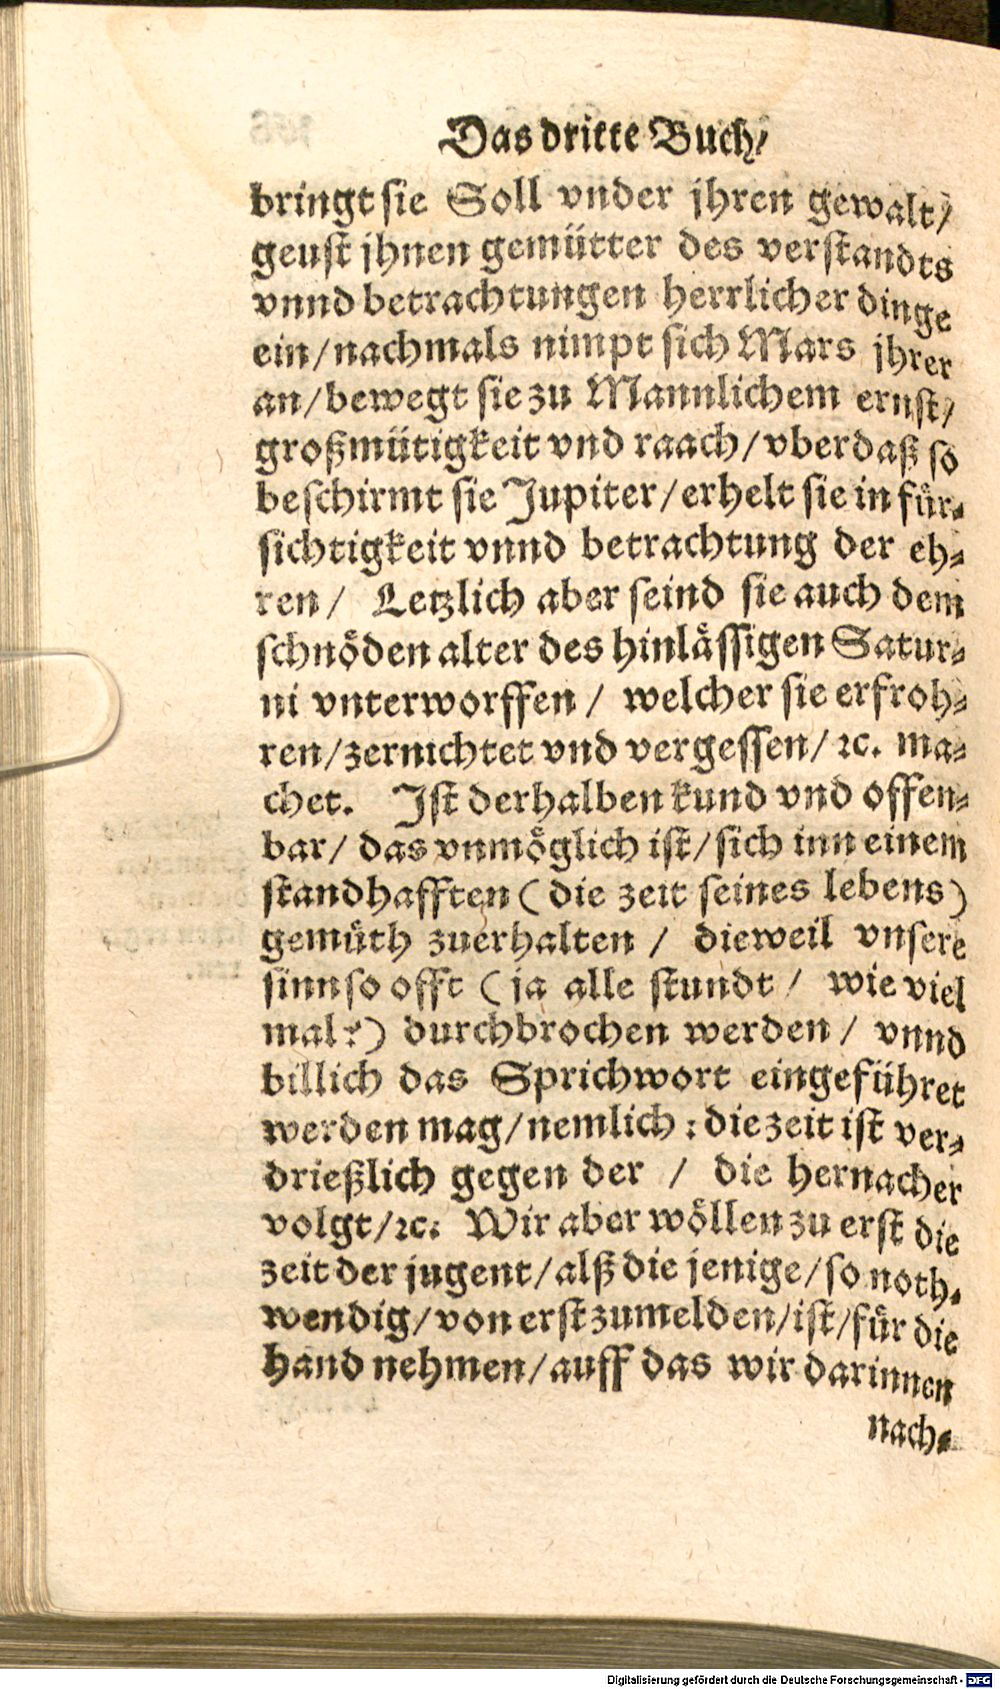 Das dritte Buch/
bringt sie Soll vnder jhren gewalt/
geust jhnen gemütter des verstandts
vnnd betrachtungen herrlicher dinge
ein/nachmals nimpt sich Mars jhrer
an/bewegt sie zu Mannlichem ernst/
großmütigkeit vnd raach/vberdaß so
beschirmt sie Jupiter/erhelt sie in für-
sichtigkeit vnnd betrachtung der eh-
ren/ Letzlich aber seind sie auch dem
schnöden alter des hinlässigen Satur-
ni vnterworffen / welcher sie erfroh-
ren/zernichtet vnd vergessen/ꝛc. ma-
chet. Jst derhalben kund vnd offen-
bar/ das vnmöglich ist/sich inn einem
standhafften (die zeit seines lebens)
gemüth zuerhalten / dieweil vnsere
sinn so offt (ja alle stundt / wie viel
mal?) durchbrochen werden / vnnd
billich das Sprichwort eingeführet
werden mag/nemlich: die zeit ist ver-
drießlich gegen der / die hernacher
volgt/ꝛc: Wir aber wöllen zu erst die
zeit der jugent/alß die jenige/so noth-
wendig/von erst zumelden/ist/für die
hand nehmen/auff das wir darinnen
nach-
Digitalisierung gefördert durch die Deutsche Forschungsgemeinschaft - DFG